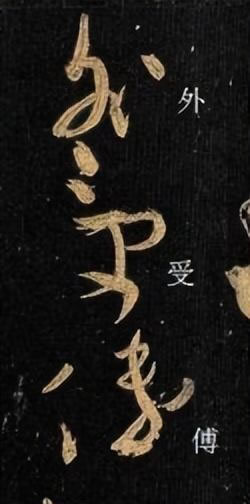 外受傅